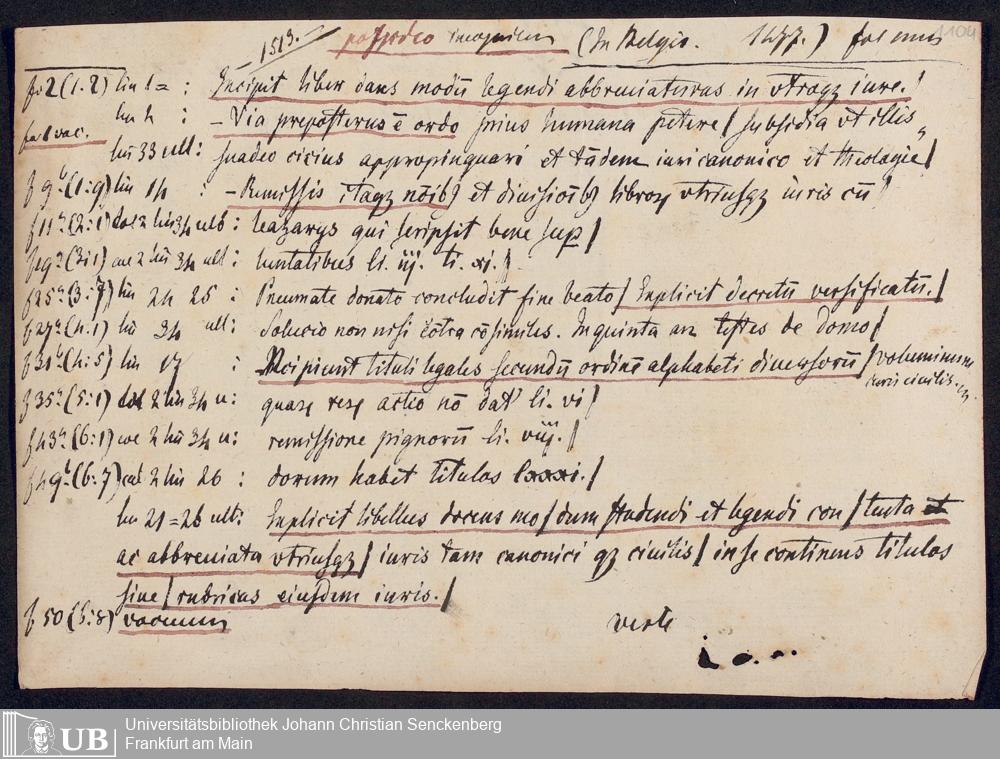 1513. (In Belgio. 1477.) fol min 1104
f. 2 (1. 2) lin 1 = : Incipit liber dans modū legendi abbreviaturas in vtroqz iure./
fol 1 vac. lin 2 : – Via preposterus ē ordo prius humana petere / subsidia vt illis
lin 33 ult: suadeo cicius appropinquari et tādem iuri canonico et theologie /
f 9b (1:9) lin 14 : – Remissis itaqz nōibꝫ et diuisioībꝫ libroꝝ vtriusqz iuris cū /
f 11a (2:1) col 2 lin 34 ult : leazarys qui scripsit bene sup /
f 19a (3:1) col 2 lin 34 ult : li. iij. ti. xi. /
f 25a (3:7) lin 24 25 : Pneumate donato concludit fine beato / Explicit decretū versificatū./
f 27a (4:1) lin 34 ult: Solucio non nisi cōtra cōsimiles. In quinta an testes de domo /
f 31b (4:5) lin 17 : Incipiunt tituli legales secundū ordinē alphabeti diuersorū / voluminum
iuris ciuilis. in
f 35a (5:1) col 2 lin 34 u: quaꝝ reꝝ actio nō dat li. vi /
f 43a (6:1) col 2 lin 34 u: remissione pignorū li. viij. /
f 49b (6:7) col 2 lin 26 : dorum habet titulos lxxxi. /
lin 27=28 ult: Explicit libellus docens mo / dum studendi et legendi con / tenta et
ac abbreuiata vtriusqz / iuris tam canonici qz ciuilis / in se continens titulos
siue / rubricas eiusdem iuris. /
f 50 (6:8) vacuum verte
Universitätsbibliothek Johann Christian Senckenberg
UB Frankfurt am Main